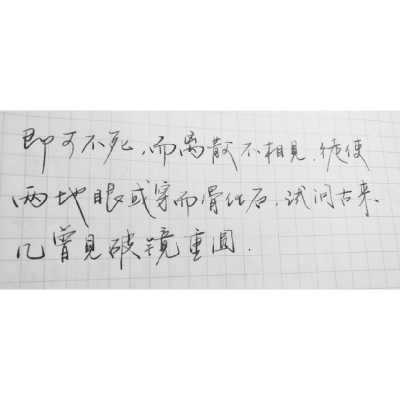 即可不死，而离散不相见，徒使
两地眼或穿而骨化石，试问古来、
几曾见破镜重圆．